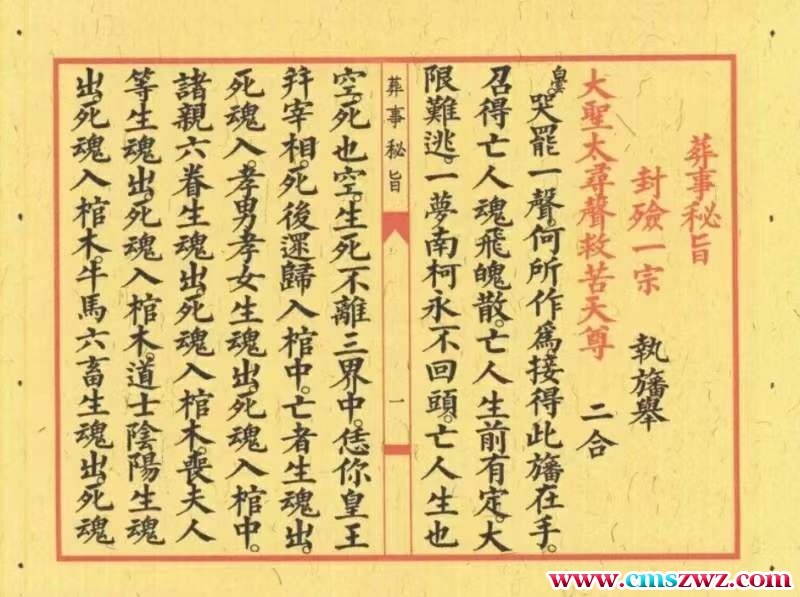 葬事秘旨
封殮一宗 執旛舉
大聖太尋聲救苦天尊 二合
皇。哭罷一聲。何所作爲接得此旛在手。
召得亡人魂飛魄散。亡人生前有定。大
限難逃。一夢南柯永不回頭。亡人生也
葬事秘旨 一
空。死也空。生死不離三界中。恁你皇王
并宰相。死後還歸入棺中。亡者生魂出。
死魂入。孝男孝女生魂出。死魂入棺中。
諸親六眷生魂出。死魂入棺木。喪夫人
等生魂出。死魂入棺木。道士陰陽生魂
出。死魂入棺木。牛馬六畜生魂出。死魂
www.cmszwz.com